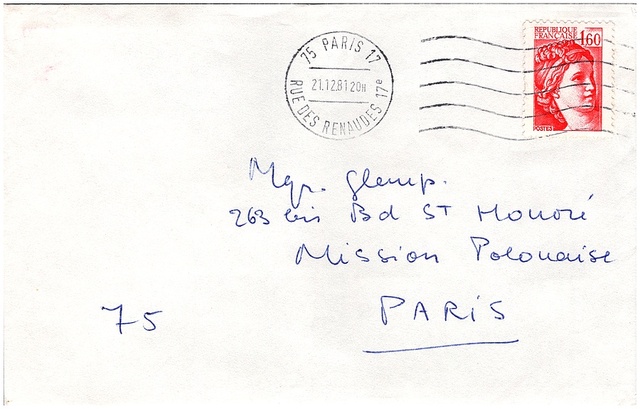 75 PARIS 17
21.12.81 20H
RUE DES RENAUDES 17e
REPUBLIQUE
FRANÇAISE 1,60
POSTES
Mgr. Glemp.
263 bis Bd ST Honoré
Mission Polonaise
75 PARIS